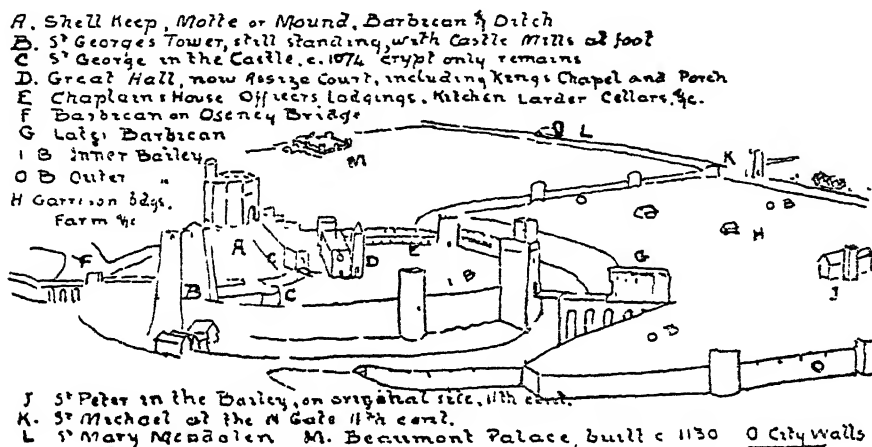 A. Shell Keep, Motte or Mound, Barbican & Ditch
B. St Georges Tower, still standing, with Castle Mills at foot
C St George in the Castle, c. 1074 crypt only remains
D. Great Hall, now Assize Court, including Kings Chapel and Porch
E Chaplains House Officers Lodgings. Kitchen Larder Cellars, &c.
F Barbican on Oseney Bridge
G Large Barbican
I B Inner Bailey
O B Outer "
H Garrison bdgs.
Farm &c
L
M
K
O
O B
H
A
F
C
D
E
G
I B
B
C
J
O B
O
J St Peter in the Bailey, on original site, 11th cent.
K. St Michael at the N Gate 11th cent.
L St Mary Magdalen M. Beaumont Palace, built c 1130 O City Walls